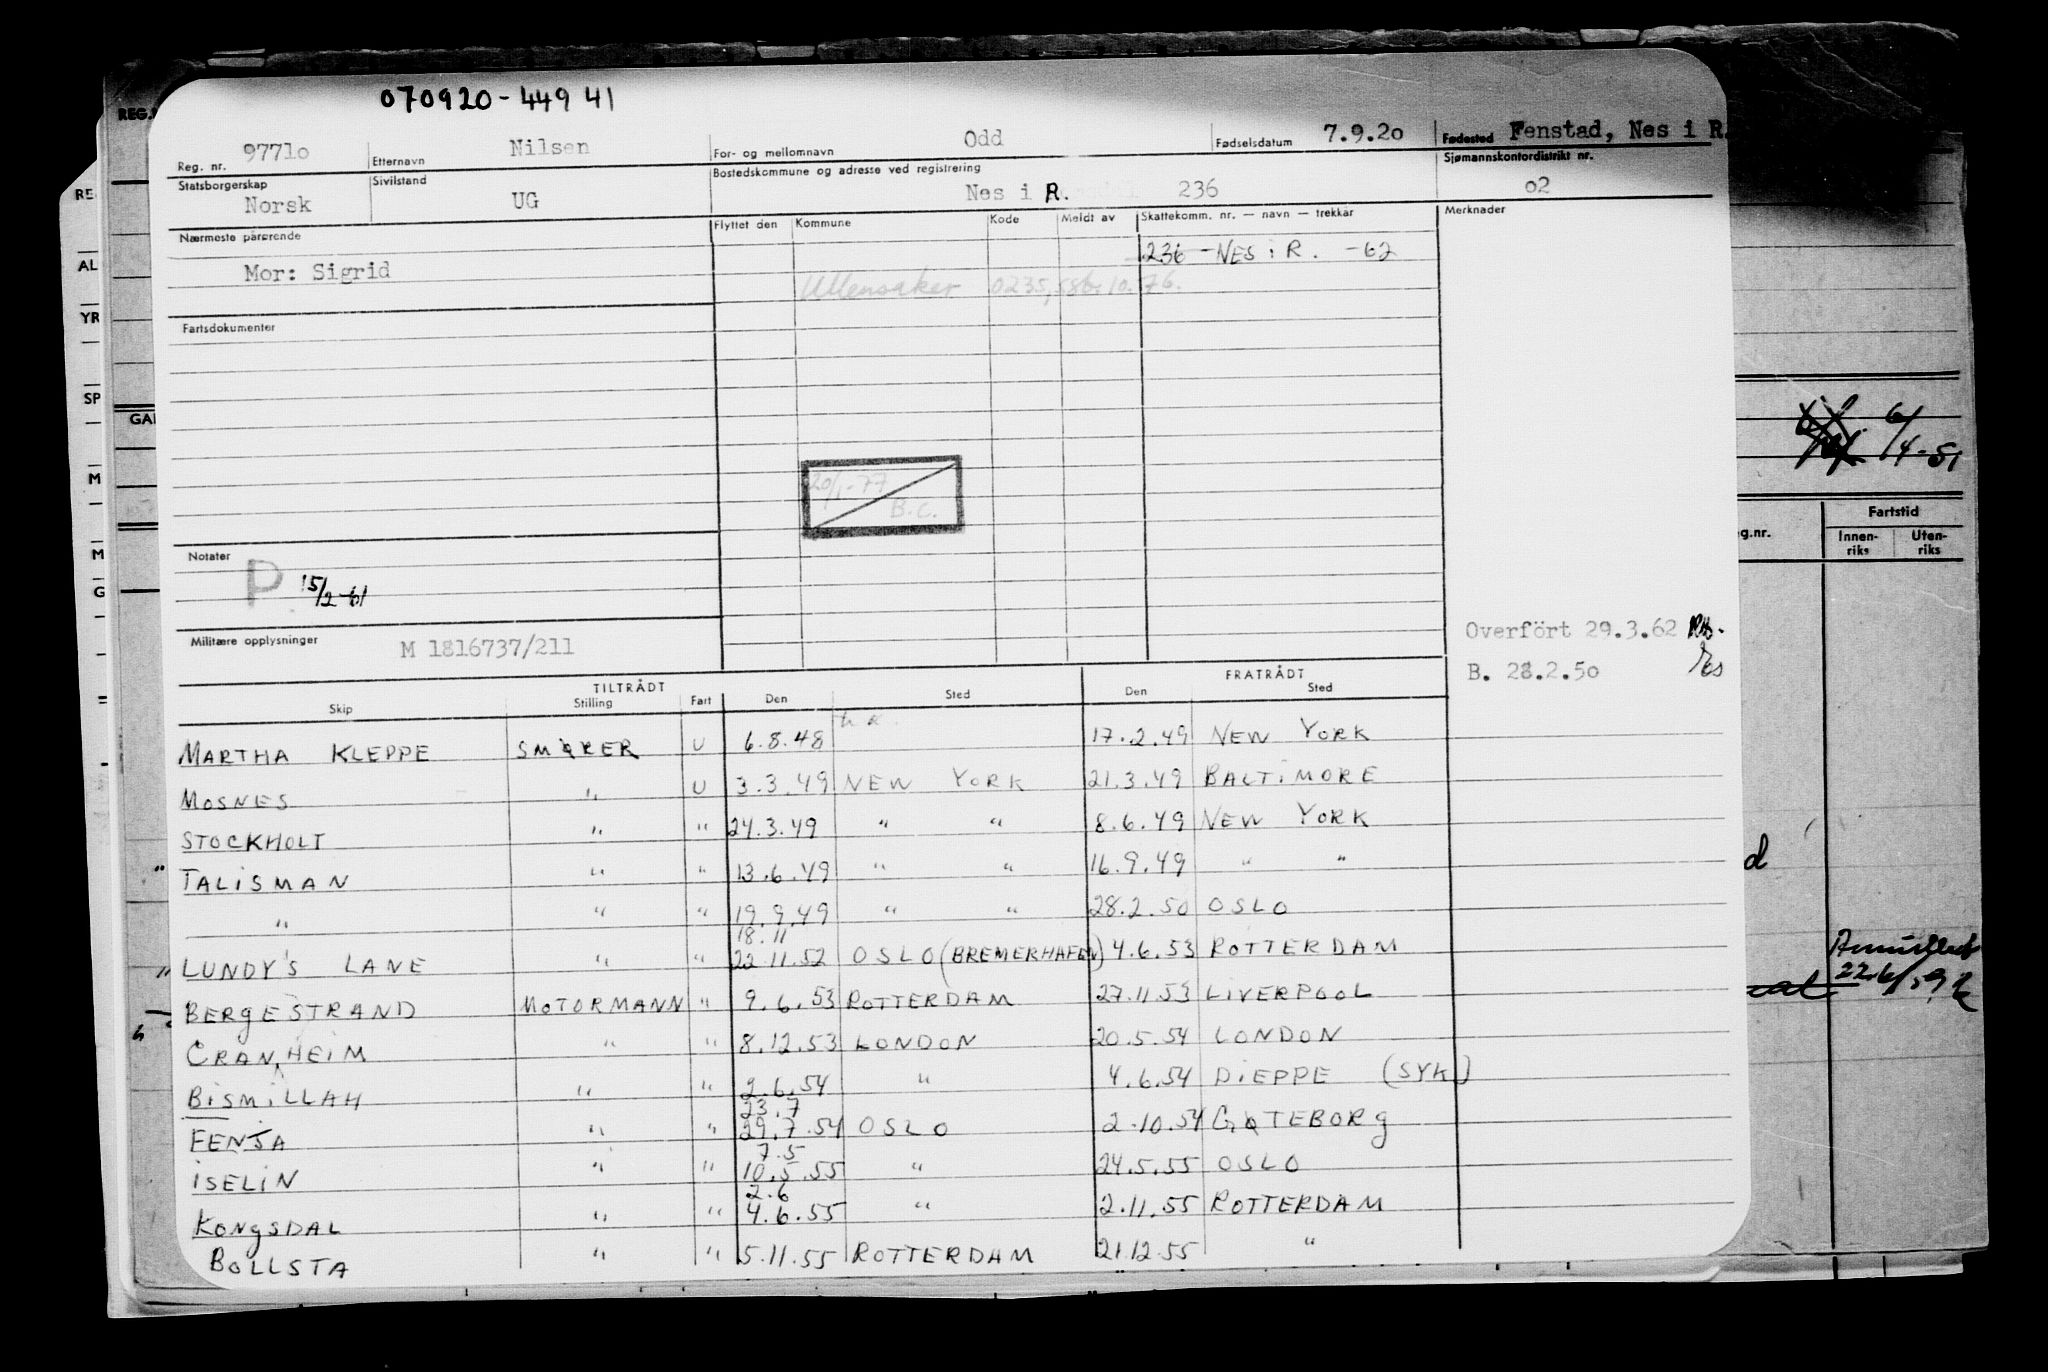 070920-449 41
Reg. nr. 97710 Etternavn Nilsen For- og mellomnavn Odd Fødselsdatum 7.9.20 Fødested Fenstad, Nes i R.
Statsborgerskap Norsk Sivilstand UG Bostedskommune og adresse ved registrering Nes i R. 236 Sjømannskontordistrikt nr. 02
Nærmeste pårørende Flyttet den Kommune Kode Meldt av Skattekomm. nr. — navn — trekkår Merknader
Mor: Sigrid 236 - NES i R. -62
Ullensaker 0235, 10.76.
Fartsdokumenter
20/1-77
B.C.
Notater
P 15/2-61
Militære opplysninger M 1816737/211
Overført 29.3.62
B. 28.2.50
TILTRÅDT FRATRÅDT
Skip Stilling Fart Den Sted Den Sted
MARTHA KLEPPE SMØRER U 6.8.48 17.2.49 NEW YORK
MOSNES " U 3.3.49 NEW YORK 21.3.49 BALTIMORE
STOCKHOLT " " 24.3.49 " " 8.6.49 NEW YORK
TALISMAN " " 13.6.49 " " 16.9.49 " "
" " " 19.9.49 " " 28.2.50 OSLO
18.11
LUNDY'S LANE " " 22.11.52 OSLO (BREMERHAFEN) 4.6.53 ROTTERDAM
BERGESTRAND MOTORMANN " 9.6.53 ROTTERDAM 27.11.53 LIVERPOOL
CRANHEIM " " 8.12.53 LONDON 20.5.54 LONDON
BISMILLAH " " 2.6.54 " 4.6.54 DIEPPE (SYK)
23.7
FENJA " " 29.7.54 OSLO 2.10.54 GØTEBORG
7.5
ISELIN " " 10.5.55 " 24.5.55 OSLO
2.6
KONGSDAL " " 4.6.55 " 2.11.55 ROTTERDAM
BOLLSTA " " 5.11.55 ROTTERDAM 21.12.55 "
REG.
RE
AL
YR
SP
GA
M
M
G
6/4-51
g.nr.
Fartstid
Innen-riks Uten-riks
d
Annullert
22/6